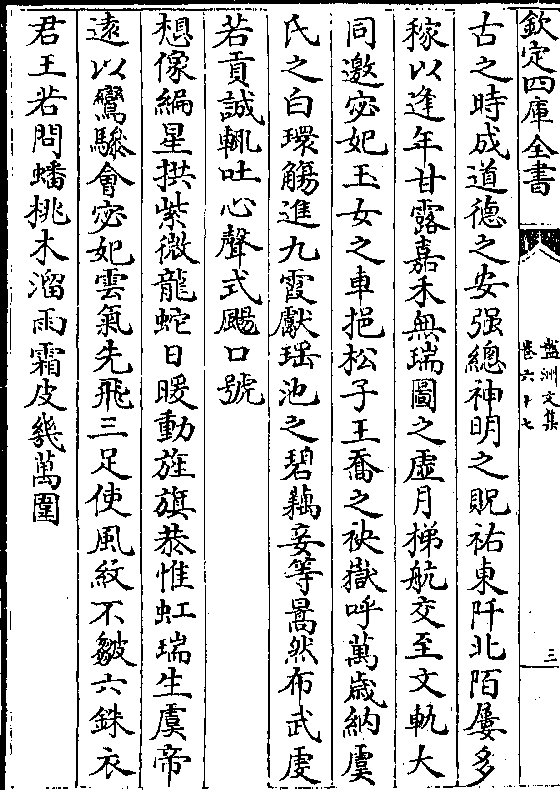 欽定四庫全書
盤洲文集
卷六十七
三
古之時成道德之安强總神明之貺祐東阡北陌屢多
稼以逢年甘露嘉禾無瑞圖之虛月梯航交至文軌大
同邀宓妃玉女之車挹松子王喬之袂嶽呼萬歳納虞
氏之白環觴進九霞獻瑶池之碧藕妾等曷然布武虔
若貢誠輒吐心聲式颺口號
想像編星拱紫微龍蛇日暖動旌旗恭惟虹瑞生虞帝
逺以鸞驂會宓妃雲氣先飛三足使風紋不皺六銖衣
君王若問蟠桃木溜雨霜皮幾萬圍